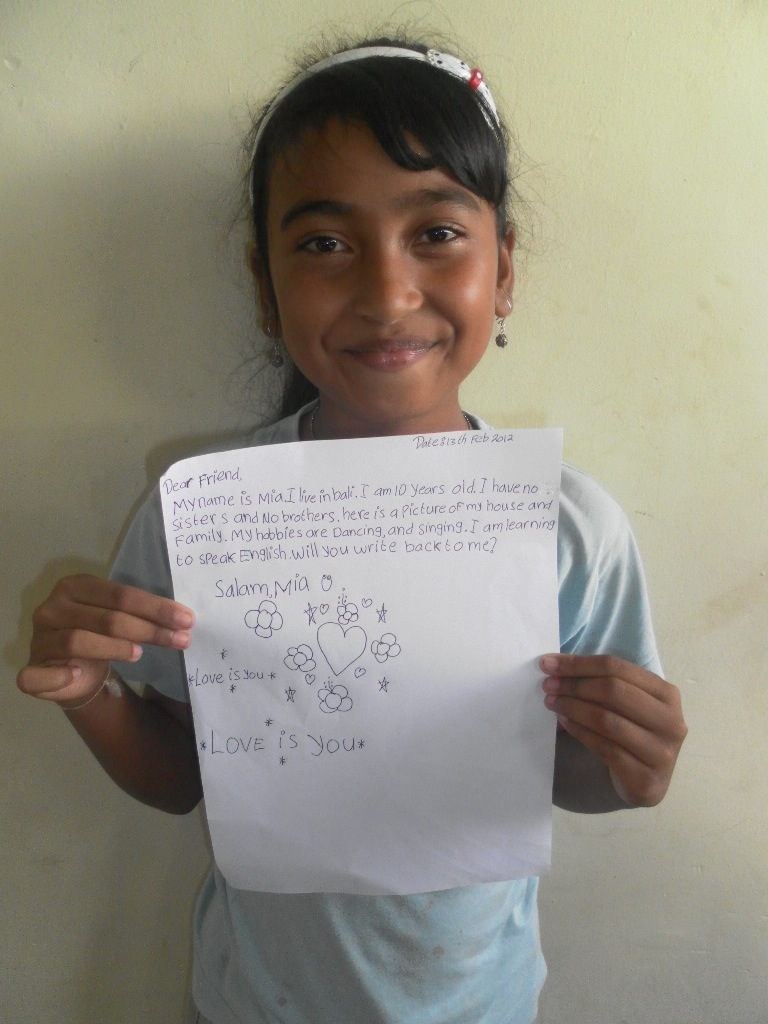 Date: 13th Feb 2012
Dear Friend,
My name is Mia. I live in bali. I am 10 years old. I have no
sisters and No brothers. here is a Picture of my house and
Family. My hobbies are Dancing, and singing. I am learning
to speak English. will you write back to me?
Salam, Mia
*Love is you*
*LOVE is you*